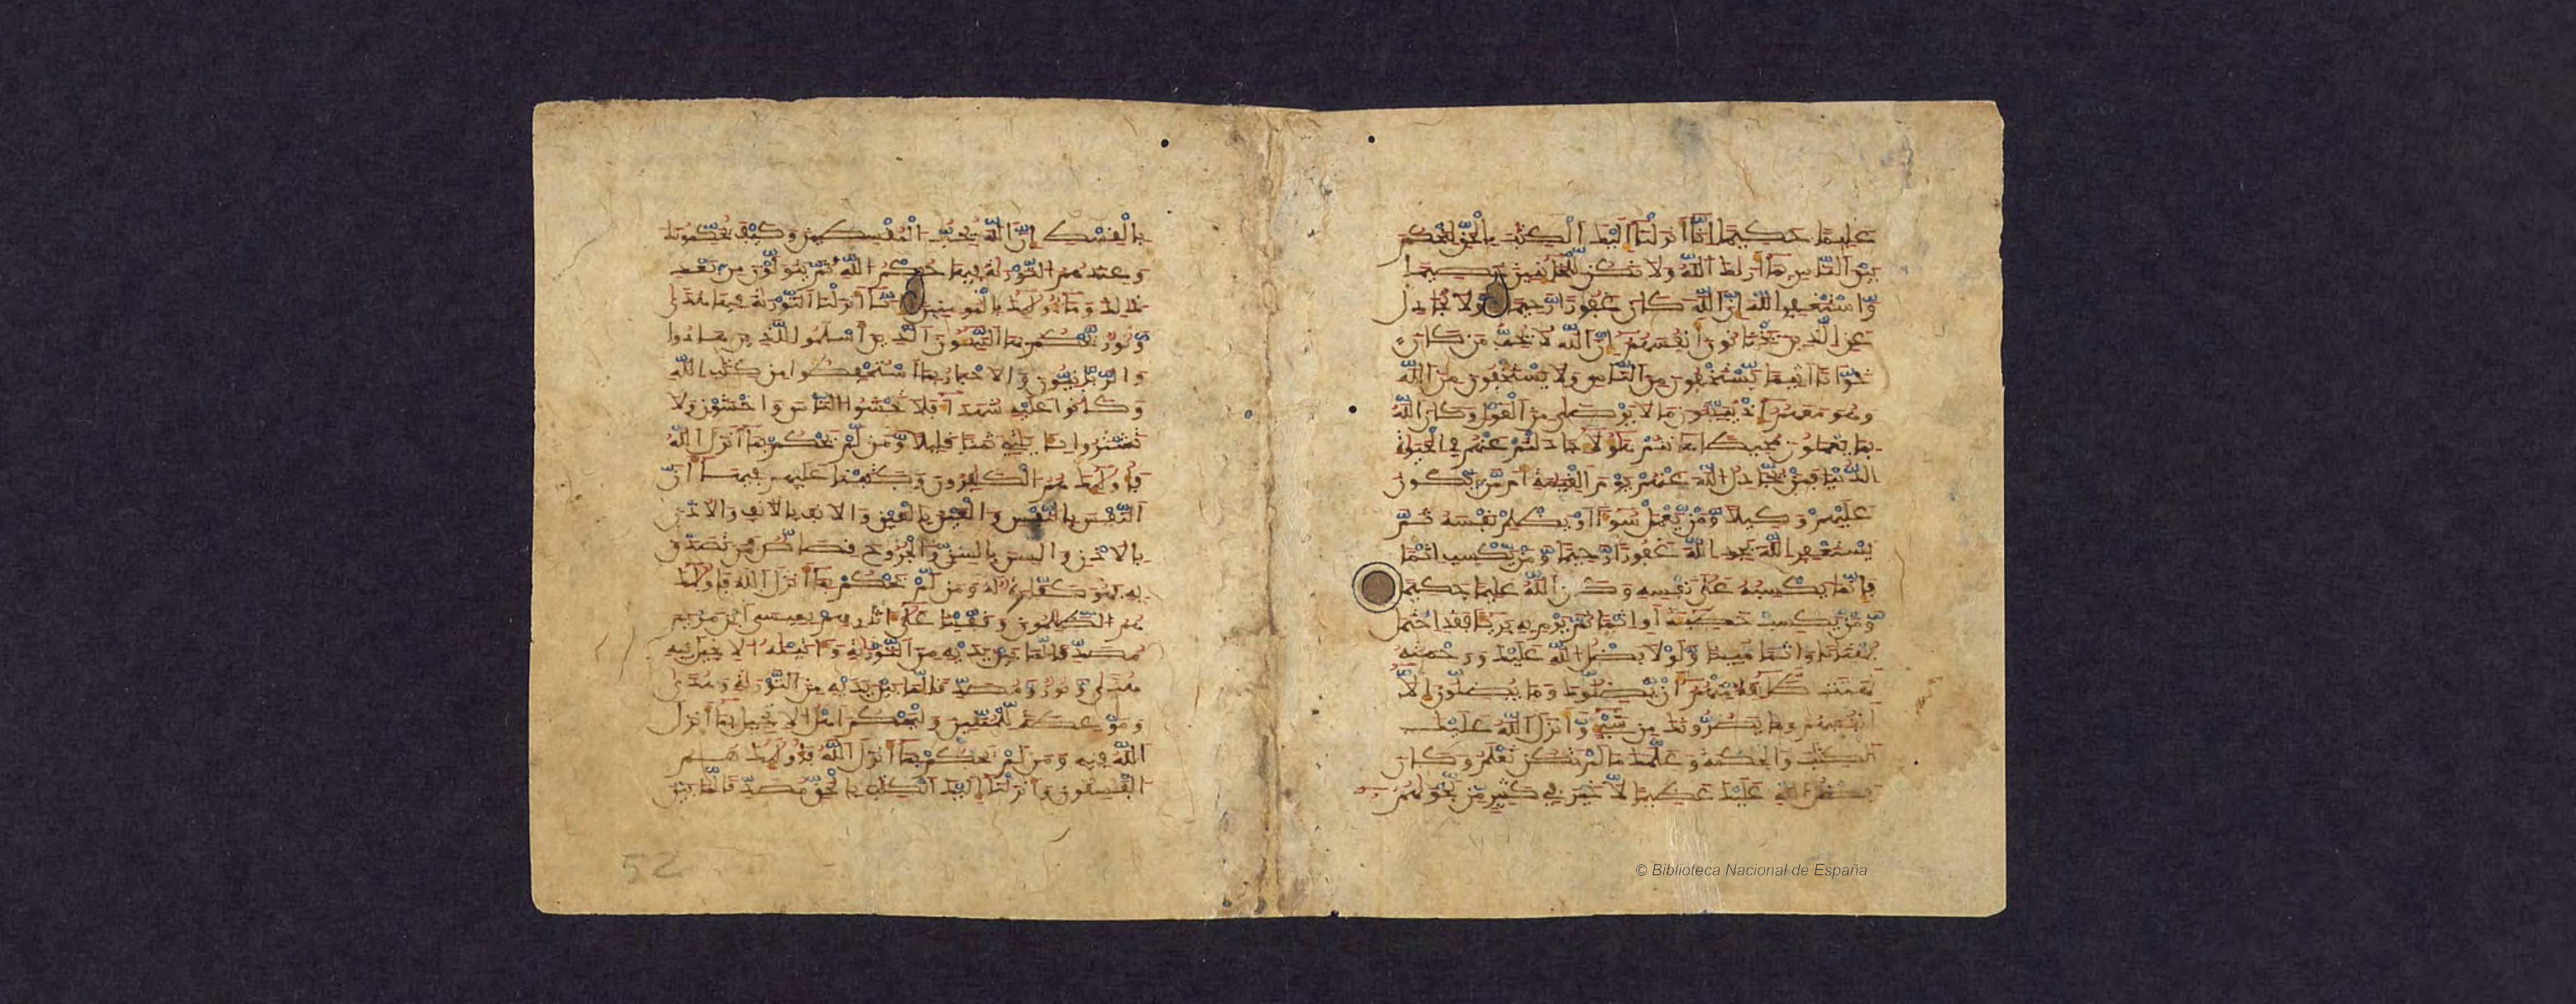 عليما حكيما انا انزلنا اليك الكتب بالحق لتحكم
بين الناس بما اريك الله ولا تكن للخائنين خصيما
واستغفر الله ان الله كان غفورا رحيما ولا تجادل
عن الذين يختانون انفسهم ان الله لا يحب من كان
خوانا اثيما يستخفون من الناس ولا يستخفون من الله
وهو معهم اذ يبيتون ما لا يرضى من القول وكان الله
بما يعملون محيطا هانتم هؤلاء جادلتم عنهم في الحيوة
الدنيا فمن يجادل الله عنهم يوم القيمة ام من يكون
عليهم وكيلا ومن يعمل سوءا او يظلم نفسه ثم
يستغفر الله يجد الله غفورا رحيما ومن يكسب اثما
فانما يكسبه على نفسه وكان الله عليما حكيما
ومن يكسب خطيئة او اثما ثم يرم به بريئا فقد احتمل
بهتنا واثما مبينا ولولا فضل الله عليك ورحمته
لهمت طائفة منهم ان يضلوك وما يضلون الا
انفسهم وما يضرونك من شيء وانزل الله عليك
الكتب والحكمة وعلمك ما لم تكن تعلم وكان
فضل الله عليك عظيما لا خير في كثير من نجويهم
بالقسط ان الله يحب المقسطين وكيف يحكمونك
وعندهم التورية فيها حكم الله ثم يتولون من بعد
ذلك وما اولئك بالمومنين انا انزلنا التورية فيها هدى
ونور يحكم بها النبيون الذين اسلموا للذين هادوا
والربنيون والاحبار بما استحفظوا من كتب الله
وكانوا عليه شهداء فلا تخشوا الناس واخشون ولا
تشتروا بايتي ثمنا قليلا ومن لم يحكم بما انزل الله
فاولئك هم الكفرون وكتبنا عليهم فيها ان
النفس بالنفس والعين بالعين والانف بالانف والاذن
بالاذن والسن بالسن والجروح قصاص فمن تصدق
به فهو كفارة له ومن لم يحكم بما انزل الله فاولئك
هم الظلمون وقفينا على اثرهم بعيسى ابن مريم
مصدقا لما بين يديه من التورية واتينه الانجيل فيه
هدى ونور ومصدقا لما بين يديه من التورية وهدى
وموعظة للمتقين وليحكم اهل الانجيل بما انزل
الله فيه ومن لم يحكم بما انزل الله فاولئك هم
الفسقون وانزلنا اليك الكتب بالحق مصدقا لما بين
52
© Biblioteca Nacional de España